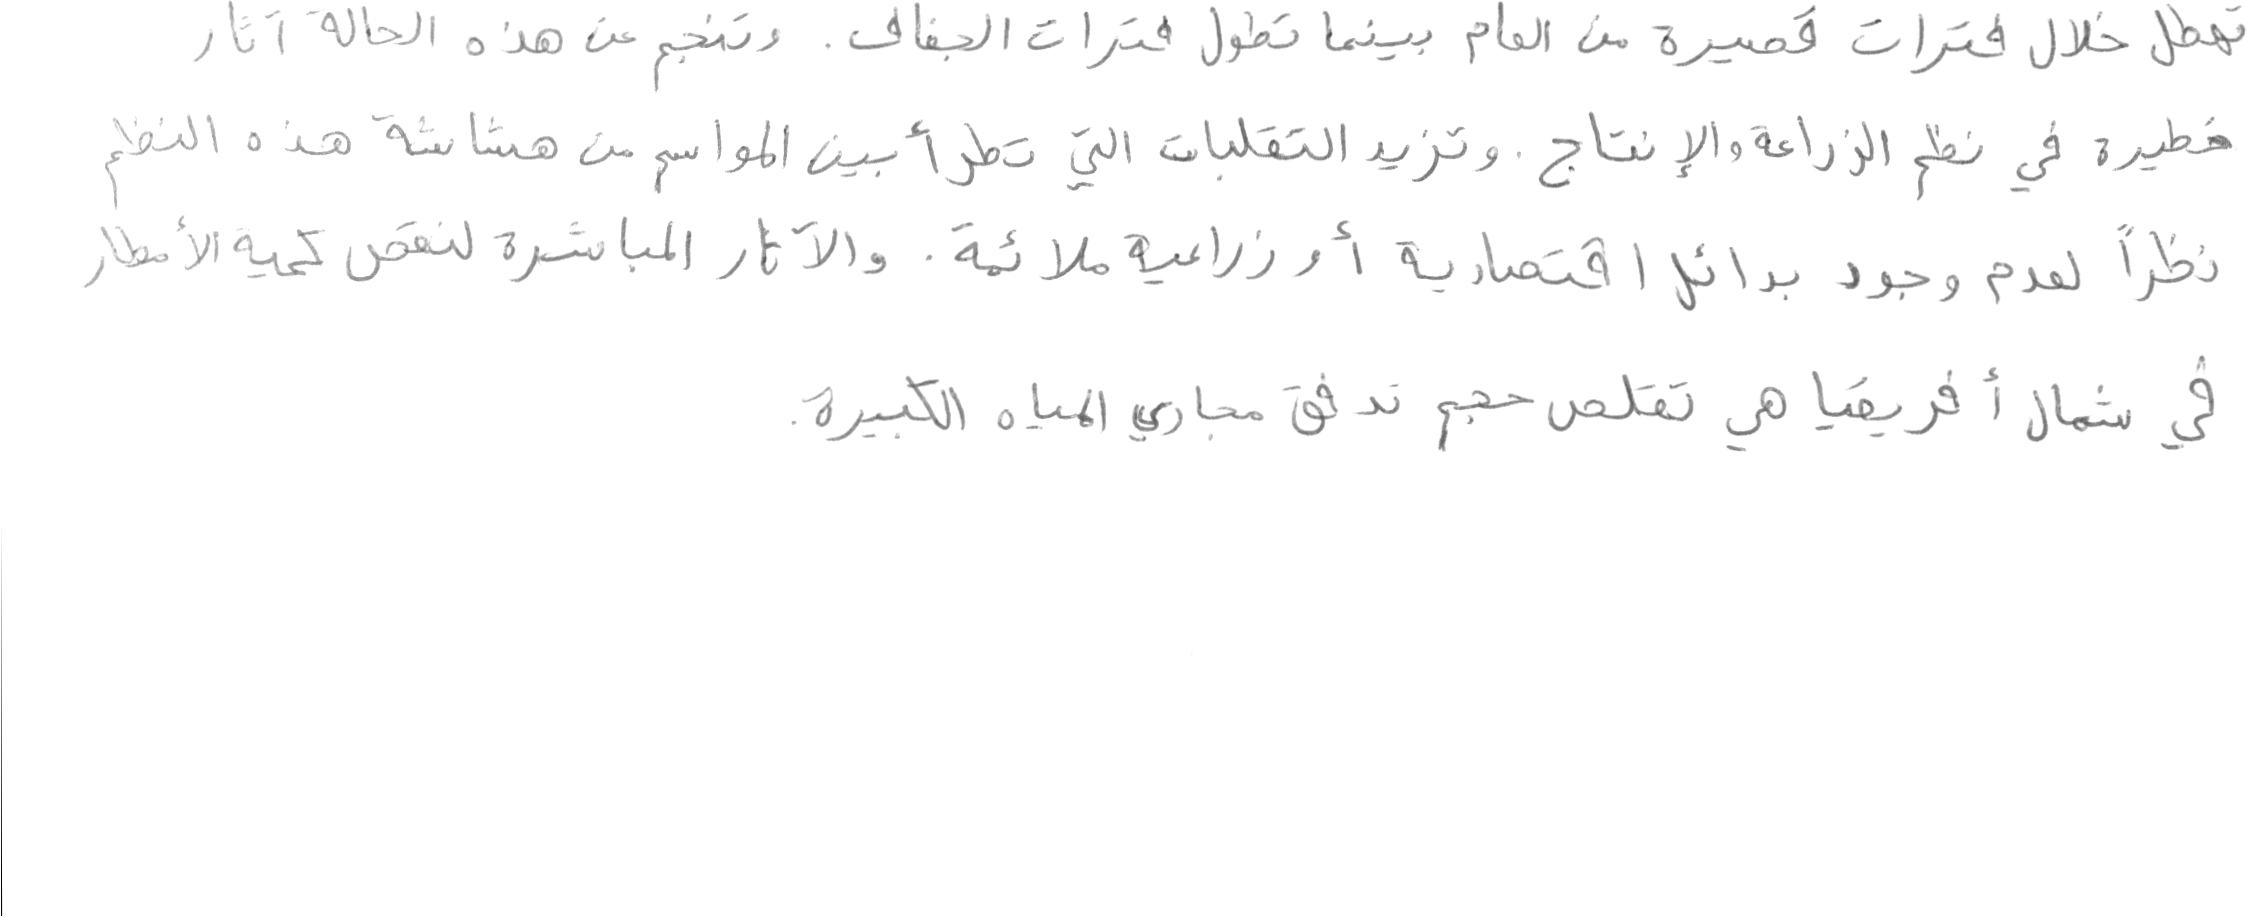 تهطل خلال فترات قصيرة من العام بينما تطول فترات الجفاف. وتنجم عن هذه الحالة آثار
خطيرة في نظم الزراعة والإنتاج. وتزيد التقلبات التي تطرأ بين المواسم من هشاشة هذه النظم
نظراً لعدم وجود بدائل اقتصادية أو زراعية ملائمة. والآثار المباشرة لنقص كمية الأمطار
في شمال أفريقيا هي تقلص حجم تدفق مجاري المياه الكبيرة.